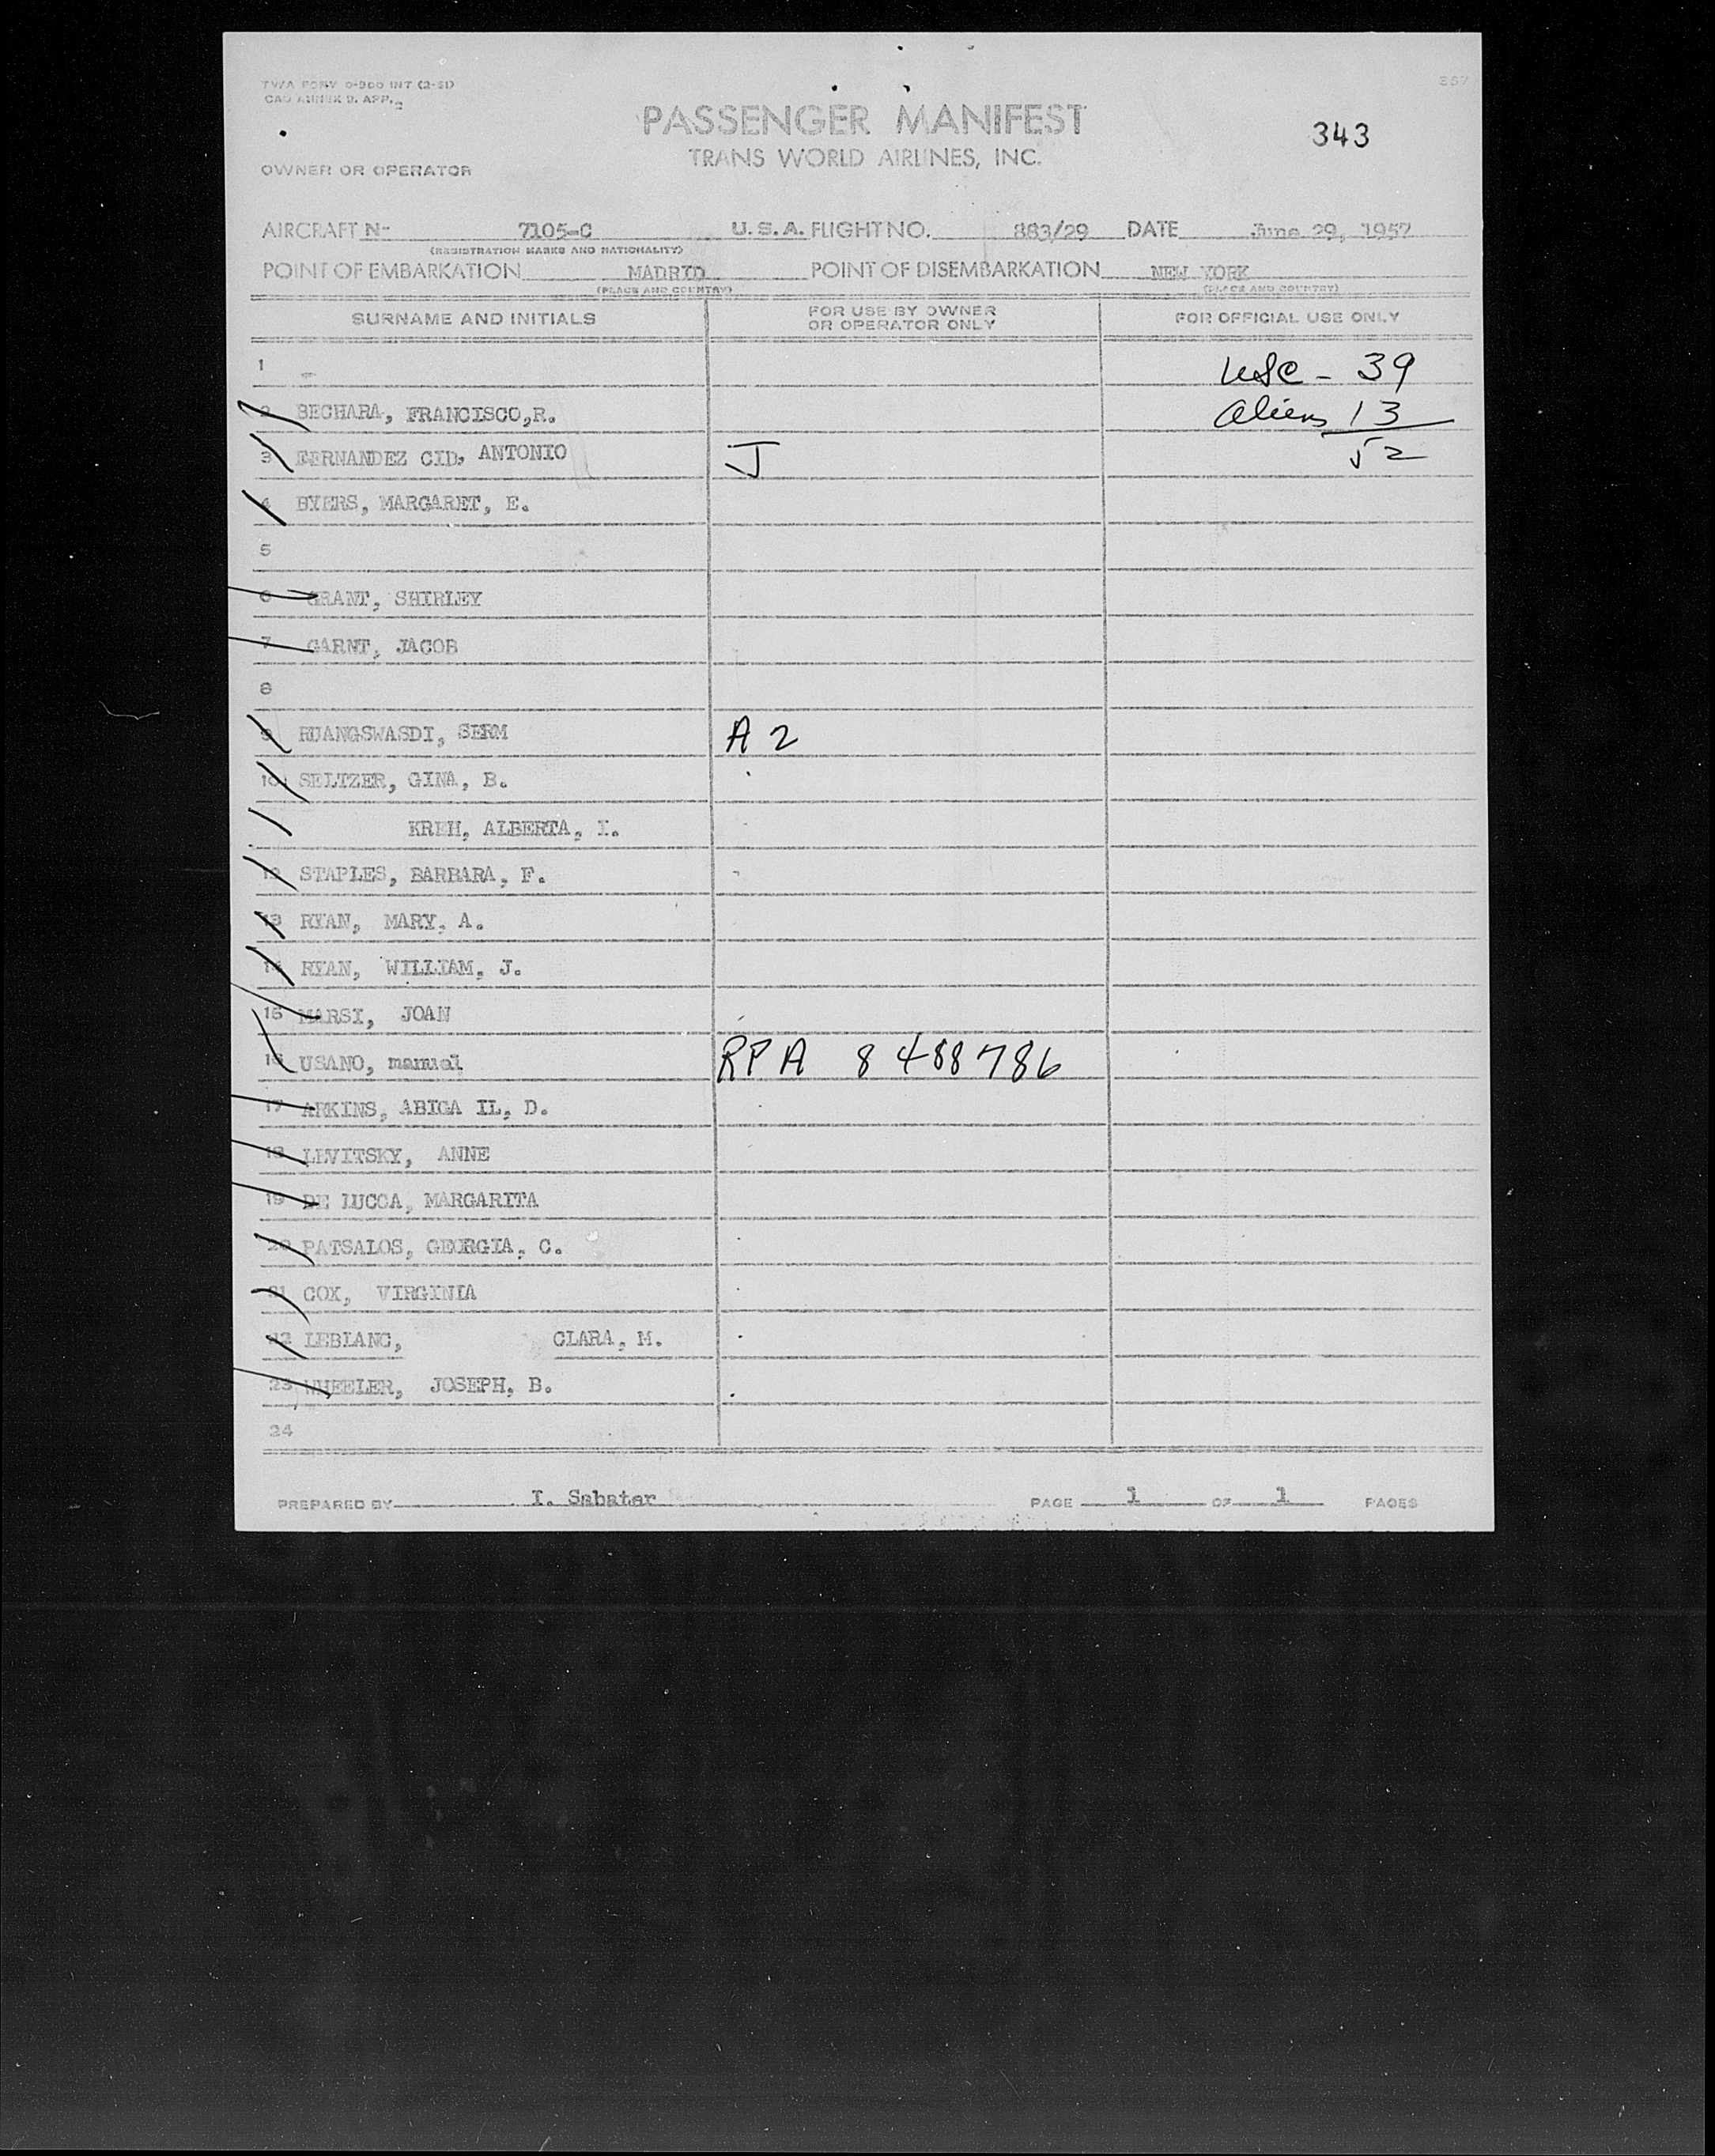 TWA FORM O-900 INT (2-51)
CAO ANNEX 9. APP. 2
357
PASSENGER MANIFEST
343
TRANS WORLD AIRLINES, INC.
OWNER OR OPERATOR
AIRCRAFT N- 7105-C U.S.A. FLIGHT NO. 883/29 DATE June 29, 1957
(REGISTRATION MARKS AND NATIONALITY)
POINT OF EMBARKATION MADRID POINT OF DISEMBARKATION NEW YORK
(PLACE AND COUNTRY) (PLACE AND COUNTRY)
SURNAME AND INITIALS FOR USE BY OWNER OR OPERATOR ONLY FOR OFFICIAL USE ONLY
1 USC - 39
2 BECHARA, FRANCISCO,R. Aliens 13
3 FERNANDEZ CID, ANTONIO J 52
4 BYERS, MARGARET, E.
5
6 GRANT, SHIRLEY
7 GARNT, JACOB
8
9 RUANGSWASDI, SERM A 2
10 SELTZER, GINA, B.
KREH, ALBERTA, I.
12 STAPLES, BARBARA, F.
13 RYAN, MARY, A.
14 RYAN, WILLIAM, J.
15 MARSI, JOAN
16 USANO, manuel RPA 8488786
17 ARKINS, ABIGA IL, D.
18 LEVITSKY, ANNE
19 DE LUCCA, MARGARITA
20 PATSALOS, GEORGIA, C.
21 COX, VIRGYNIA
22 LEBLANC, CLARA, M.
23 WHEELER, JOSEPH, B.
24
PREPARED BY I. Sabater PAGE 1 OF 1 PAGES